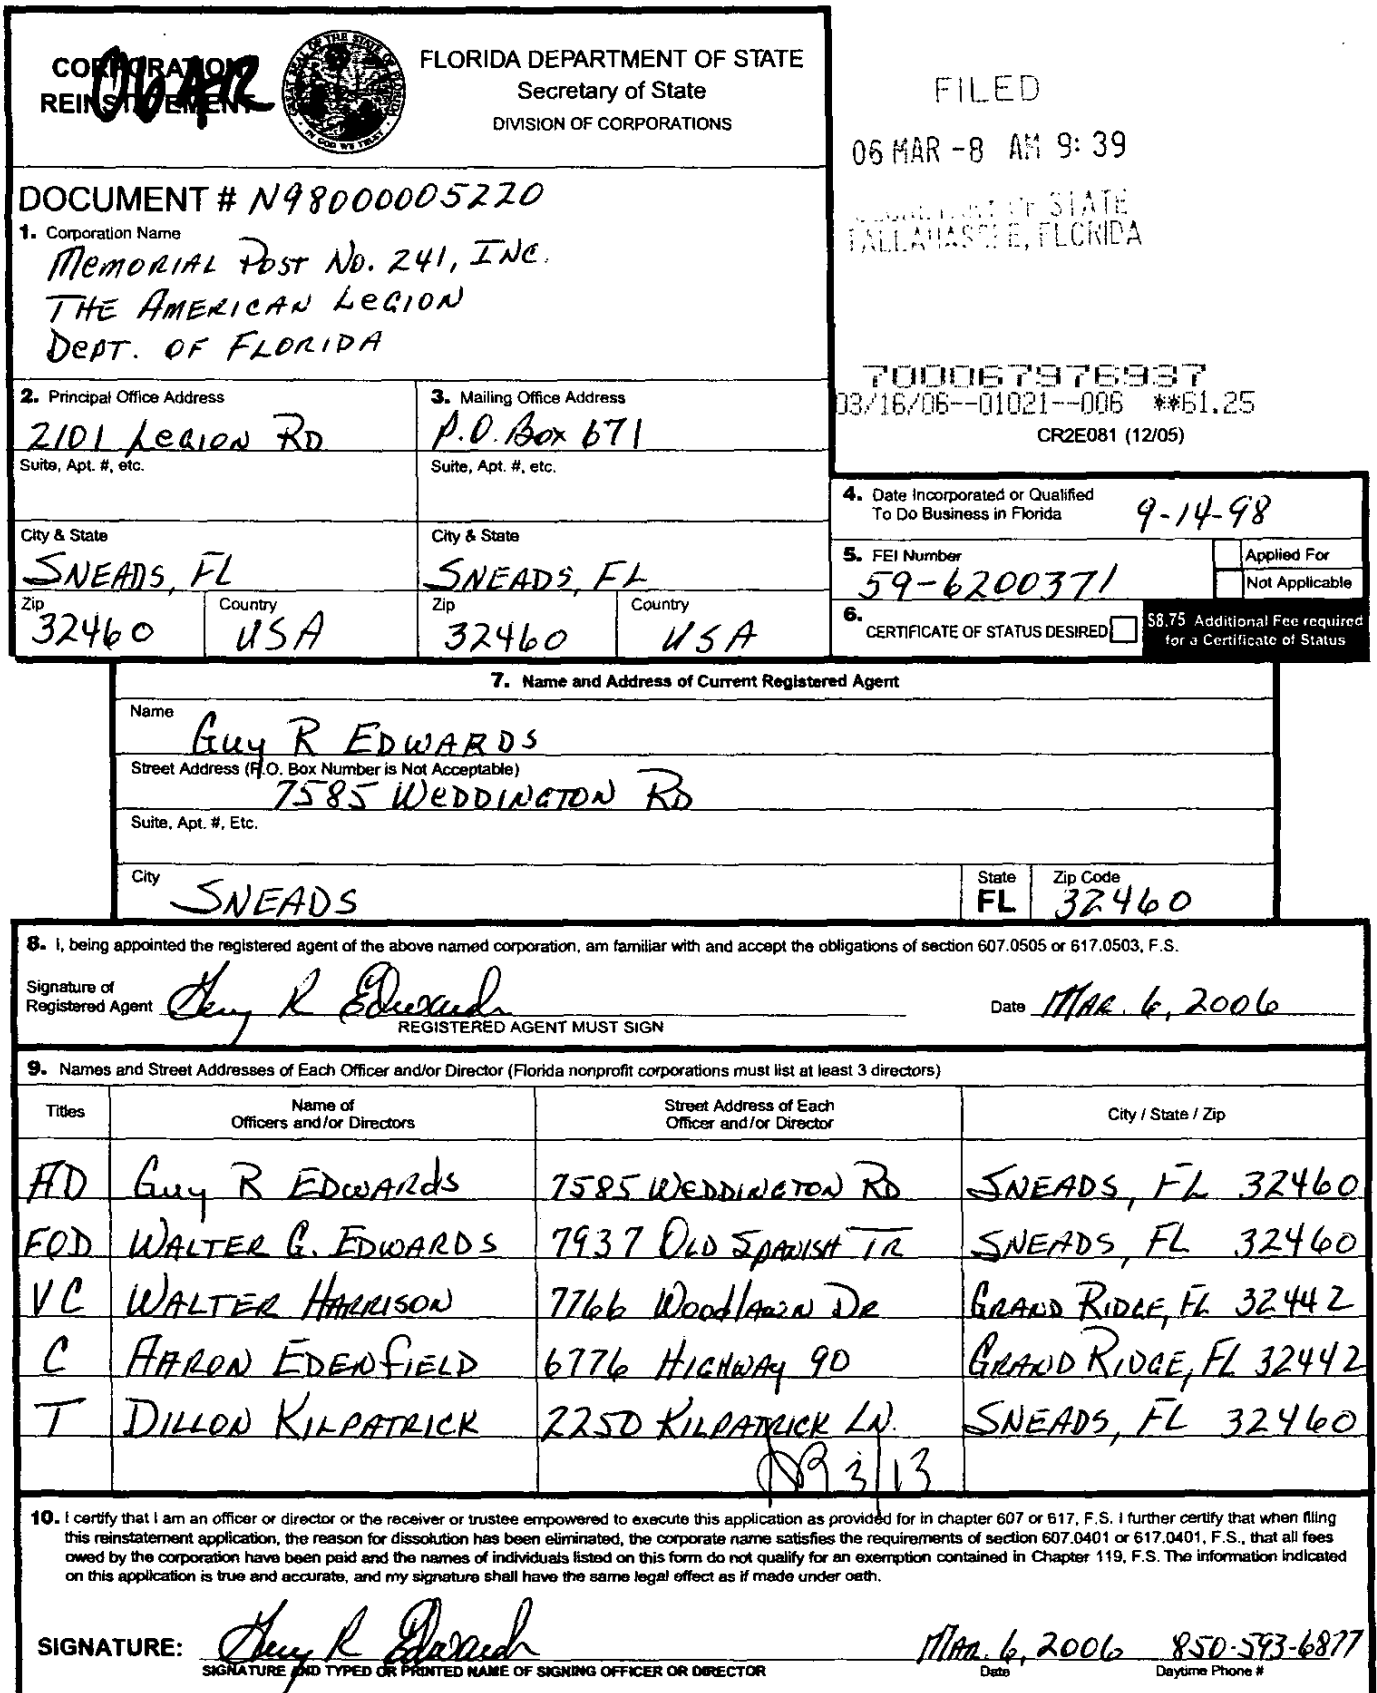 CORPORATION
REINSTATEMENT
06AR
FLORIDA DEPARTMENT OF STATE
Secretary of State
DIVISION OF CORPORATIONS
FILED
06 MAR -8 AM 9:39
OF STATE
TALLAHASSEE, FLORIDA
DOCUMENT # N98000005220
1. Corporation Name
MEMORIAL POST NO. 241, INC.
THE AMERICAN LEGION
DEPT. OF FLORIDA
700067976937
03/16/06--01021--006 **61.25
CR2E081 (12/05)
2. Principal Office Address
2101 LEGION RD
Suite, Apt. #, etc.
City & State
SNEADS, FL
Zip
32460
Country
USA
3. Mailing Office Address
P.O. BOX 671
Suite, Apt. #, etc.
City & State
SNEADS, FL
Zip
32460
Country
USA
4. Date Incorporated or Qualified
To Do Business in Florida
9-14-98
5. FEI Number
59-6200371
Applied For
Not Applicable
6. CERTIFICATE OF STATUS DESIRED
$8.75 Additional Fee required
for a Certificate of Status
7. Name and Address of Current Registered Agent
Name
Guy R EDWARDS
Street Address (P.O. Box Number is Not Acceptable)
7585 WEDDINGTON RD
Suite, Apt. #, Etc.
City
SNEADS
State
FL
Zip Code
32460
8. I, being appointed the registered agent of the above named corporation, am familiar with and accept the obligations of section 607.0505 or 617.0503, F.S.
Signature of
Registered Agent Guy R Edwards Date MAR. 6, 2006
REGISTERED AGENT MUST SIGN
9. Names and Street Addresses of Each Officer and/or Director (Florida nonprofit corporations must list at least 3 directors)
Titles
Name of
Officers and/or Directors
Street Address of Each
Officer and/or Director
City / State / Zip
AD Guy R EDWARDS 7585 WEDDINGTON RD SNEADS, FL 32460
FOD WALTER G. EDWARDS 7937 OLD SPANISH TR SNEADS, FL 32460
VC WALTER HARRISON 7766 Woodlawn DR GRAND RIDGE, FL 32442
C AARON EDENFIELD 6776 HIGHWAY 90 GRAND RIDGE, FL 32442
T DILLON KILPATRICK 2250 KILPATRICK LN. SNEADS, FL 32460
3/13
10. I certify that I am an officer or director or the receiver or trustee empowered to execute this application as provided for in chapter 607 or 617, F.S. I further certify that when filing
this reinstatement application, the reason for dissolution has been eliminated, the corporate name satisfies the requirements of section 607.0401 or 617.0401, F.S., that all fees
owed by the corporation have been paid and the names of individuals listed on this form do not qualify for an exemption contained in Chapter 119, F.S. The information indicated
on this application is true and accurate, and my signature shall have the same legal effect as if made under oath.
SIGNATURE: Guy R Edwards MAR. 6, 2006 850-593-6877
SIGNATURE AND TYPED OR PRINTED NAME OF SIGNING OFFICER OR DIRECTOR Date Daytime Phone #